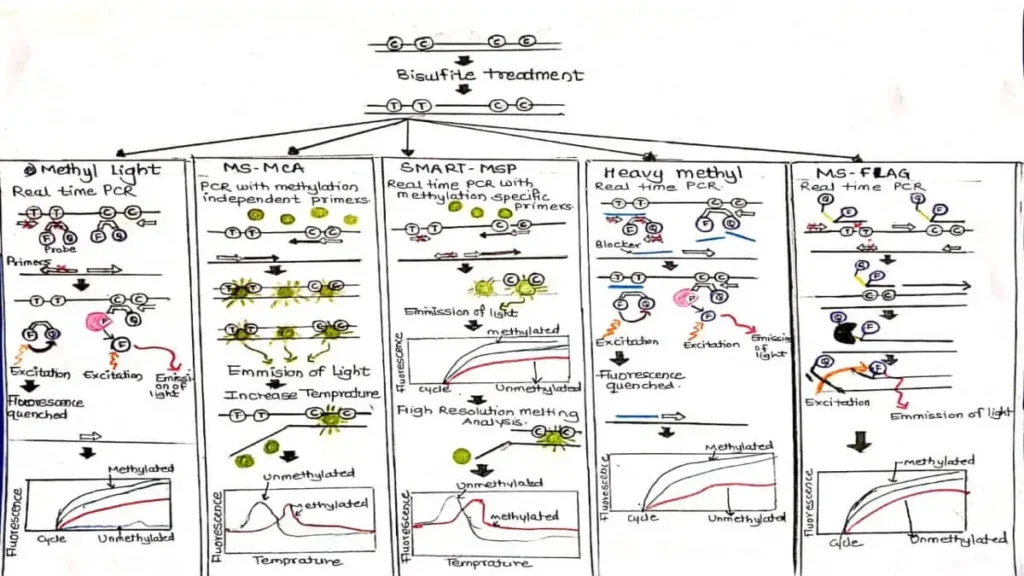 C C C C
Bisulfite treatment
T T C C
Methyl Light
Real time PCR
T T C C
F Q F Q
Probe
Primers
T T C C
P F Q
F Q F
Excitation Excitation Emissi
on of
light
Fluorescence
quenched
Methylated
Fluorescence
Cycle Unmethylated
MS-MCA
PCR with methylation
independent primers
T T C C
T T C C
T T C C
Emmision of Light
Increase Temprature
T T C C
Unmethylated
Methylated
Fluorescence
Temprature
SMART-MSP
Real time PCR with
methylation specific
primers.
T T C C
C C
Emmission of light
methylated
Fluorescence
Cycle Unmethylated
High Resolution melting
Analysis.
C C
Unmethylated
methylated
Fluorescence
Temprature
Heavy methyl
Real time PCR.
T T C C
F Q F Q
Blocker
T T C C
P Q
F Q F
Excitation Excitation Emissi
of
light
Fluorescence
quenched.
Methylated
Fluorescence
Cycle Unmethylated
MS-FLAG
Real time PCR
Q F Q F
T T C C
Q F
C C
Q F
Q F
Excitation
Emmission of light
methylated
Fluorescence
Cycle Unmethylated